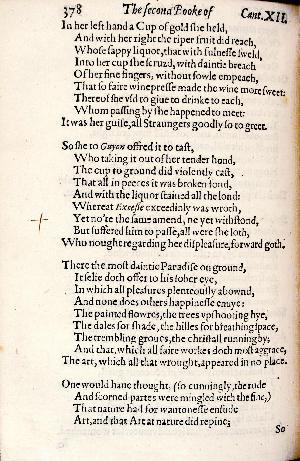 378 The second Booke of Cant. XII.
In her left hand a Cup of gold she held,
And with her right the riper fruit did reach,
Whose sappy liquor, that with fulnesse sweld,
Into her cup she scruzd, with daintie breach
Of her fine fingers, without fowle empeach,
That so faire winepresse made the wine more sweet:
Thereof she vsd to giue to drinke to each,
Whom passing by she happened to meet:
It was her guise, all Straungers goodly so to greet.
So she to Guyon offred it to tast,
Who taking it out of her tender hond,
The cup to ground did violently cast,
That all in peeces it was broken fond,
And with the liquor stained all the lond:
Whereat Excesse exceedinly was wroth,
Yet no'te the same amend, ne yet withstond,
But suffered him to passe, all were she loth,
Who nought regarding her displeasure, forward goth.
There the most daintie Paradise on ground,
It selfe doth offer to his sober eye,
In which all pleasures plenteously abownd,
And none does others happinesse enuye:
The painted flowres, the trees vpshooting hye,
The dales for shade, the hilles for breathing space,
The trembling groues, the christall running by;
And that, which all faire workes doth most aggrace,
The art, which all that wrought, appeared in no place.
One would haue thought, (so cunningly, the rude
And scorned partes were mingled with the fine,)
That nature had for wantonesse ensude
Art, and that Art at nature did repine;
So